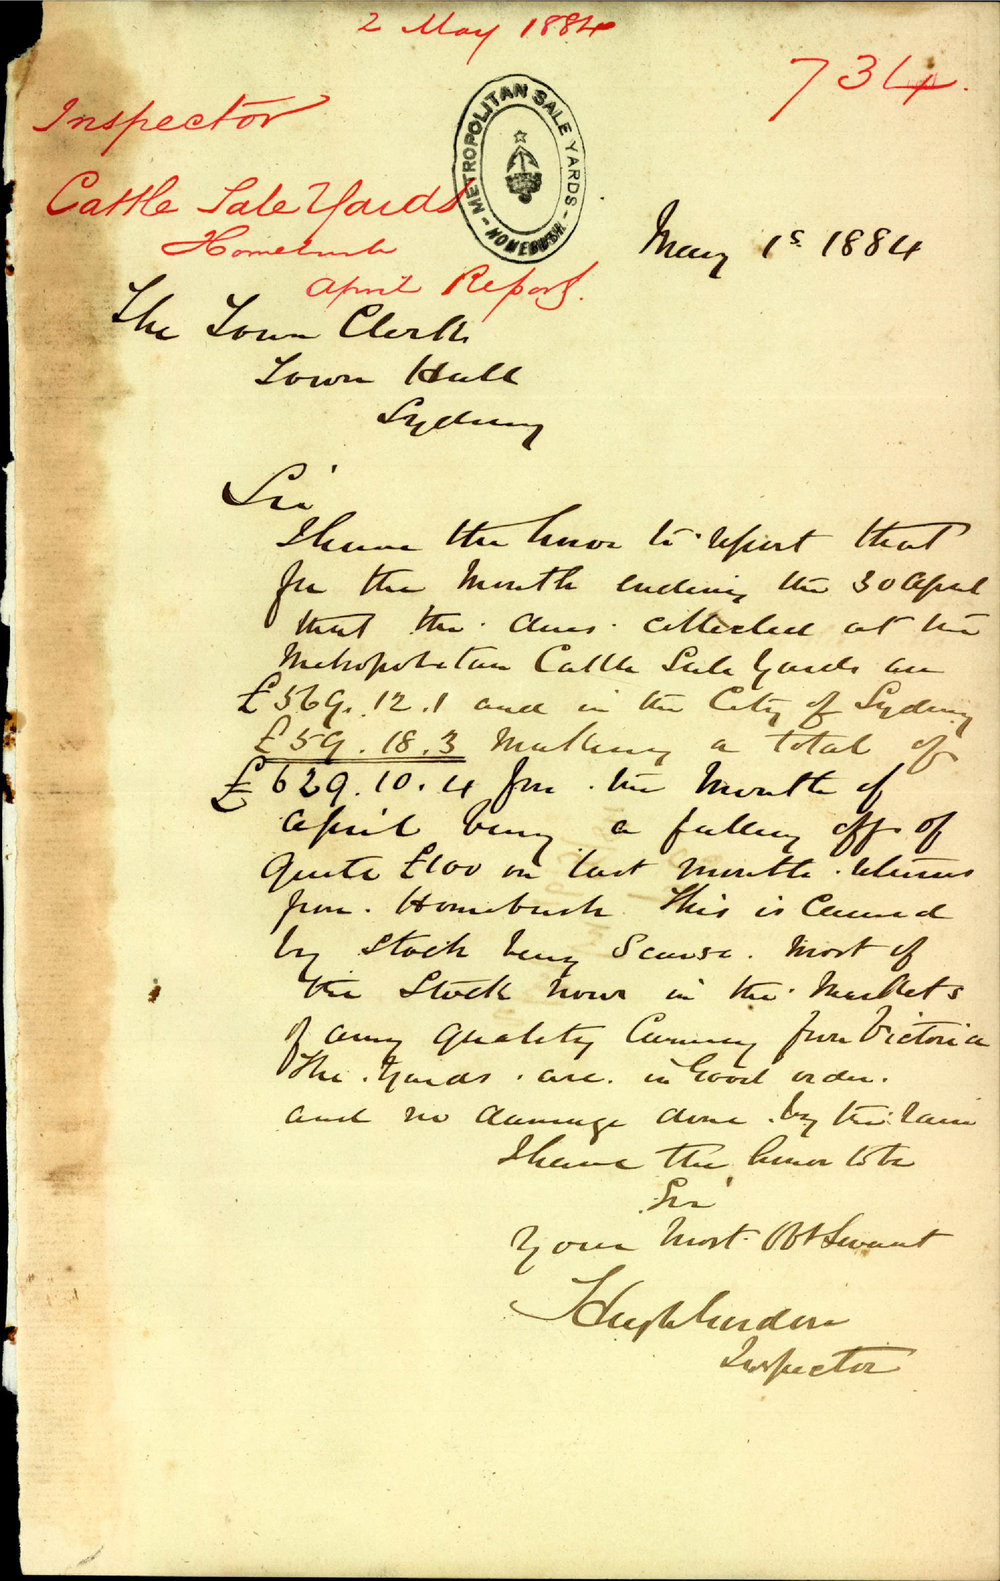 2 May 1884
734.
Inspector
Cattle Sale Yards
Homebush
April Report.
METROPOLITAN SALE YARDS
HOMEBUSH
May 1s 1884
The Town Clerk
Town Hall
Sydney
Sir
I have the honor to report that
for the Month ending the 30 April
that the dues collected at the
Metropolitan Cattle Sale Yards are
£569.12.1 and in the City of Sydney
£59.18.3 Making a total of
£629.10.4 for the Month of
April being a falling off of
quite £100 on last months returns
from Homebush This is Caused
by Stock being Scarse. Most of
the Stock now in the Markets
of any quality Coming from Victoria
The Yards are in Good order.
and no damage done by the rain
I have the honor to be
Sir
Your Most Obt Servant
Hugh Gordon
Inspector